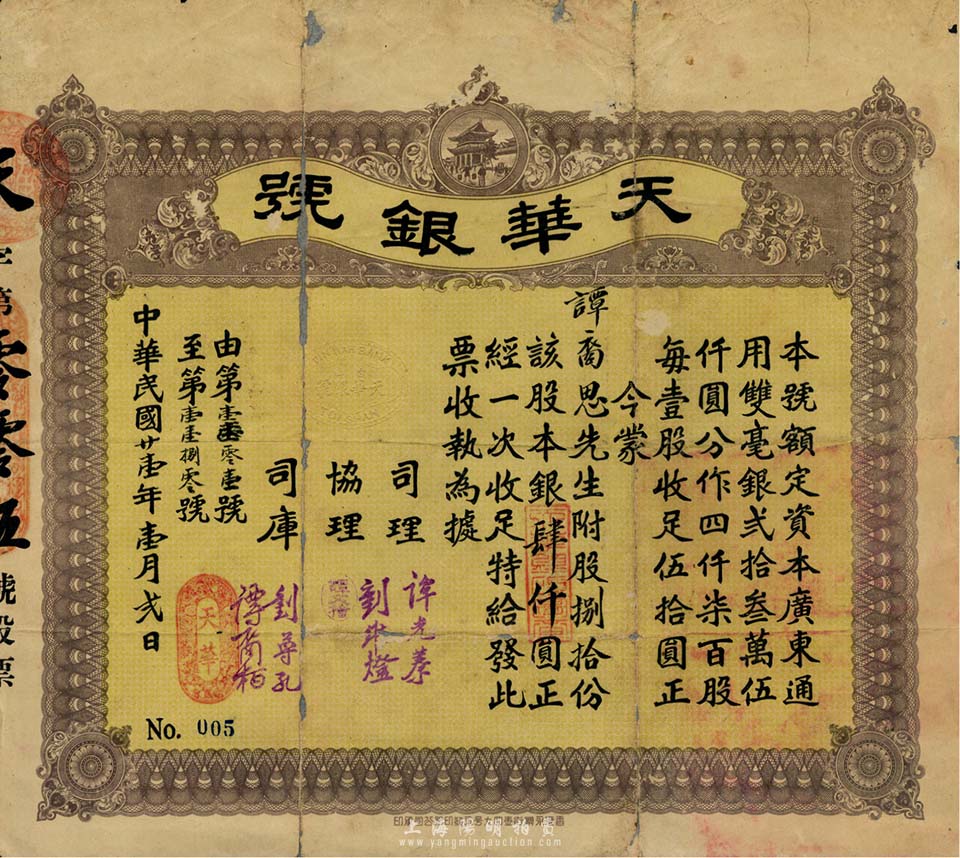 天華銀號
本號額定資本廣東通
用雙毫銀弍拾叁萬伍
仟圓分作四仟柒百股
每壹股收足伍拾圓正
今蒙
譚裔思先生附股捌拾份
該股本銀肆仟圓正
經一次收足特給發此
票收執為據
司理
協理
司庫
譚光蓁
劉尊孔
由第壹壹零壹號
至第壹壹捌零號
中華民國廿壹年壹月弍日
天華
No. 005
天字第零零伍號股票
上海陽明拍賣
www.yangmingauction.com